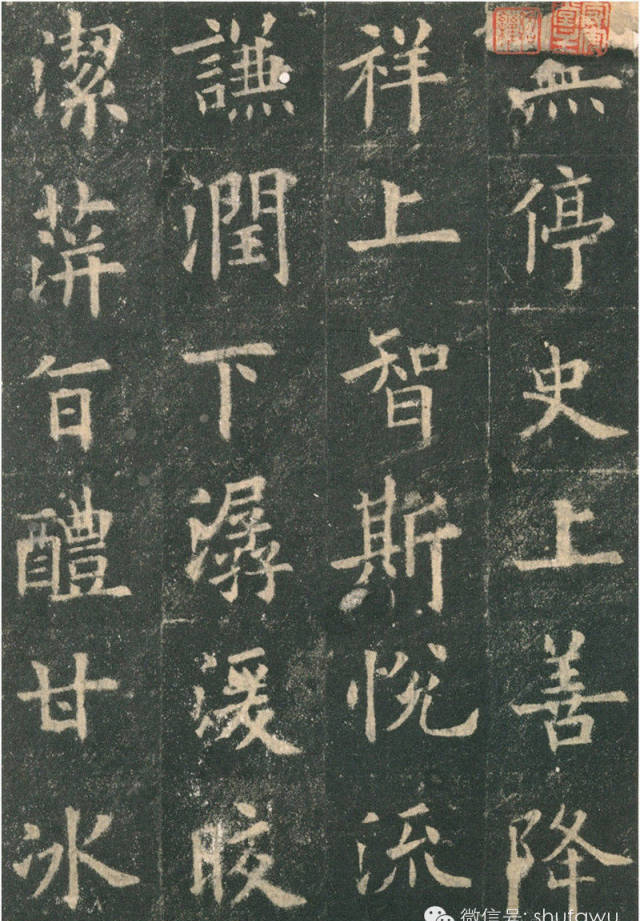 無停史上善降
祥上智斯悅流
謙潤下潺湲皎
潔萍旨醴甘冰
微信号: shufawu